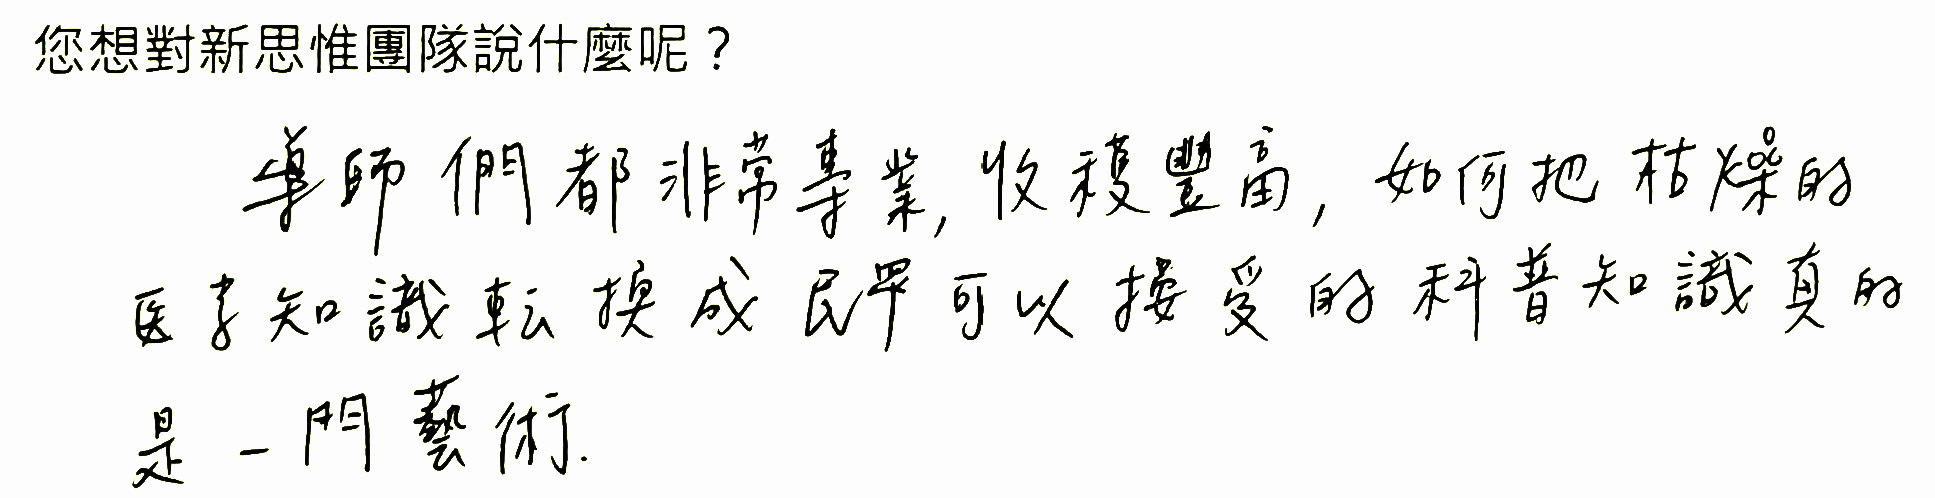 您想對新思惟團隊說什麼呢？
導師們都非常專業, 收穫豐富, 如何把枯燥的
医学知識転換成民眾可以接受的科普知識真的
是一門藝術.